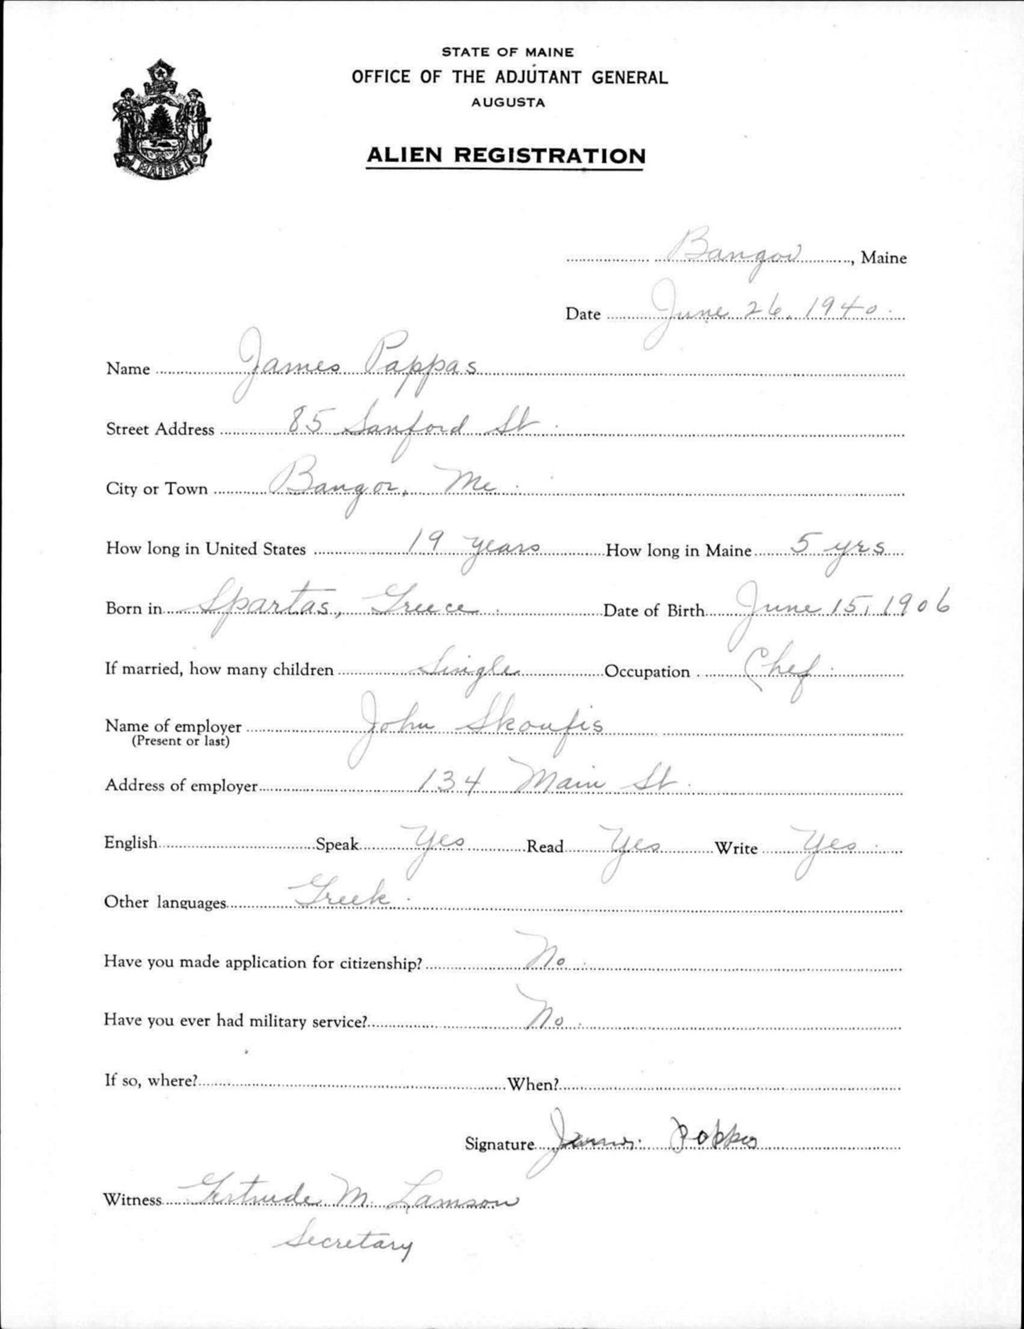 STATE OF MAINE
OFFICE OF THE ADJUTANT GENERAL
AUGUSTA
ALIEN REGISTRATION
MAINE
Bangor, Maine
Date June 26, 1940
Name James Pappas
Street Address 85 Sanford St.
City or Town Bangor, Me.
How long in United States 19 years How long in Maine 5 yrs
Born in Spartas, Greece. Date of Birth June 15, 1906
If married, how many children Single Occupation Chef.
Name of employer John Skoufis
(Present or last)
Address of employer 134 Main St.
English Speak Yes Read Yes Write Yes.
Other languages Greek.
Have you made application for citizenship? No.
Have you ever had military service? No.
If so, where? When?
Signature James Pappas
Witness Gertrude M. Lamson
Secretary